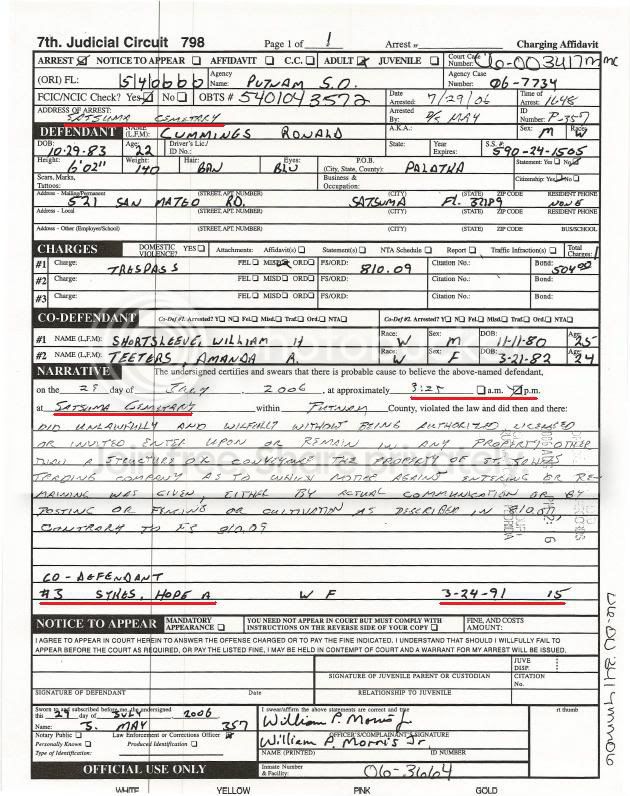 7th. Judicial Circuit 798 Page 1 of 1 Arrest # Charging Affidavit
ARREST NOTICE TO APPEAR AFFIDAVIT C.C. ADULT JUVENILE Court Case Number:
(ORI) FL: 540000 Agency Name PUTNAM S.O. Agency Case Number: 06-7734
FCIC/NCIC Check? Yes No OBTS # 5401043572 Date Arrested: 7/29/06 Time of Arrest 1648
ADDRESS OF ARREST: SATSUMA CEMETARY Arrested By: D/S MAY ID Number: P-357
DEFENDANT NAME (L,F,M): CUMMINGS RONALD A.K.A.: Sex: M Race: W
DOB: 10-29-83 Age: 22 Driver's Lic./ ID No.: State: Year Expires: S.S. # 590-24-1505
Height: 6'02" Weight: 140 Hair: BRN Eyes: BLU P.O.B. (City, State, County): PALATKA Statement: Yes No
Scars, Marks, Tattoos: Business & Occupation: Citizenship: Yes No
Address - Mailing/Permanent (STREET, APT. NUMBER) (CITY) (STATE) ZIP CODE RESIDENT PHONE
521 SAN MATEO RD. SATSUMA FL. 32189 NONE
Address - Local (STREET, APT. NUMBER) (CITY) (STATE) ZIP CODE RESIDENT PHONE
Address - Other (Employer/School) (STREET, APT. NUMBER) (CITY) (STATE) ZIP CODE BUS/SCHOOL
CHARGES DOMESTIC VIOLENCE? YES Attachments: Affidavit(s) Statement(s) NTA Schedule Report Traffic Infraction(s) Total Charges: 1
#1 Charge: TRESPASS FEL MISD ORD FS/ORD: 810.09 Citation No.: Bond: 504.00
#2 Charge: FEL MISD ORD FS/ORD: Citation No.: Bond:
#3 Charge: FEL MISD ORD FS/ORD: Citation No.: Bond:
CO-DEFENDANT Co-Def #1 Arrested? Y N Fel. Misd. Traf. Ord. NTA Co-Def #2. Arrested? Y N Fel. Misd. Traf. Ord. NTA
#1 NAME (L,F,M) SHORTSLEEVE, WILLIAM H Race: W Sex: M DOB: 11-11-80 Age: 25
#2 NAME (L,F,M) TEETERS, AMANDA A. Race: W Sex: F DOB: 3-21-82 Age: 24
NARRATIVE The undersigned certifies and swears that there is probable cause to believe the above-named defendant,
on the 29 day of JULY, 2006 at approximately 3:25 a.m. p.m.
at SATSUMA CEMETARY within PUTNAM County, violated the law and did then and there:
DID UNLAWFULLY AND WILFULLY WITHOUT BEING AUTHORIZED, LICENSED
OR INVITED ENTER UPON OR REMAIN IN ANY PROPERTY OTHER
THAN A STRUCTURE OR CONVEYANCE THE PROPERTY OF ST. JOHNS
TRADING COMPANY AS TO WHICH NOTICE AGAINST ENTERING OR RE-
MAINING WAS GIVEN, EITHER BY ACTUAL COMMUNICATION OR BY
POSTING OR FENCING OR CULTIVATION AS DESCRIBED IN 810.011,
CONTRARY TO FS 810.09
CO-DEFENDANT
#3 SYKES, HOPE A W F 3-24-91 15
NOTICE TO APPEAR MANDATORY APPEARANCE YOU NEED NOT APPEAR IN COURT BUT MUST COMPLY WITH INSTRUCTIONS ON THE REVERSE SIDE OF YOUR COPY FINE, AND COSTS AMOUNT:
I AGREE TO APPEAR IN COURT HEREIN TO ANSWER THE OFFENSE CHARGED OR TO PAY THE FINE INDICATED. I UNDERSTAND THAT SHOULD I WILLFULLY FAIL TO
APPEAR BEFORE THE COURT AS REQUIRED, OR PAY THE LISTED FINE, I MAY BE HELD IN CONTEMPT OF COURT AND A WARRANT FOR MY ARREST WILL BE ISSUED.
JUVE DISP.:
SIGNATURE OF JUVENILE PARENT OR CUSTODIAN CITATION No.
SIGNATURE OF DEFENDANT Date RELATIONSHIP TO JUVENILE
Sworn to and subscribed before me, the undersigned I swear/affirm the above statements are correct and true rt thumb
this 29 day of JULY 2006 William P. Morris Jr
Name: J. MAY 357 OFFICER'S/COMPLAINANT'S SIGNATURE
Notary Public Law Enforcement or Corrections Officer William P. Morris Jr
Personally Known Produced Identification NAME (PRINTED) ID NUMBER
Type of Identification:
OFFICIAL USE ONLY Inmate Number & Facility: 06-3664
WHITE YELLOW PINK GOLD